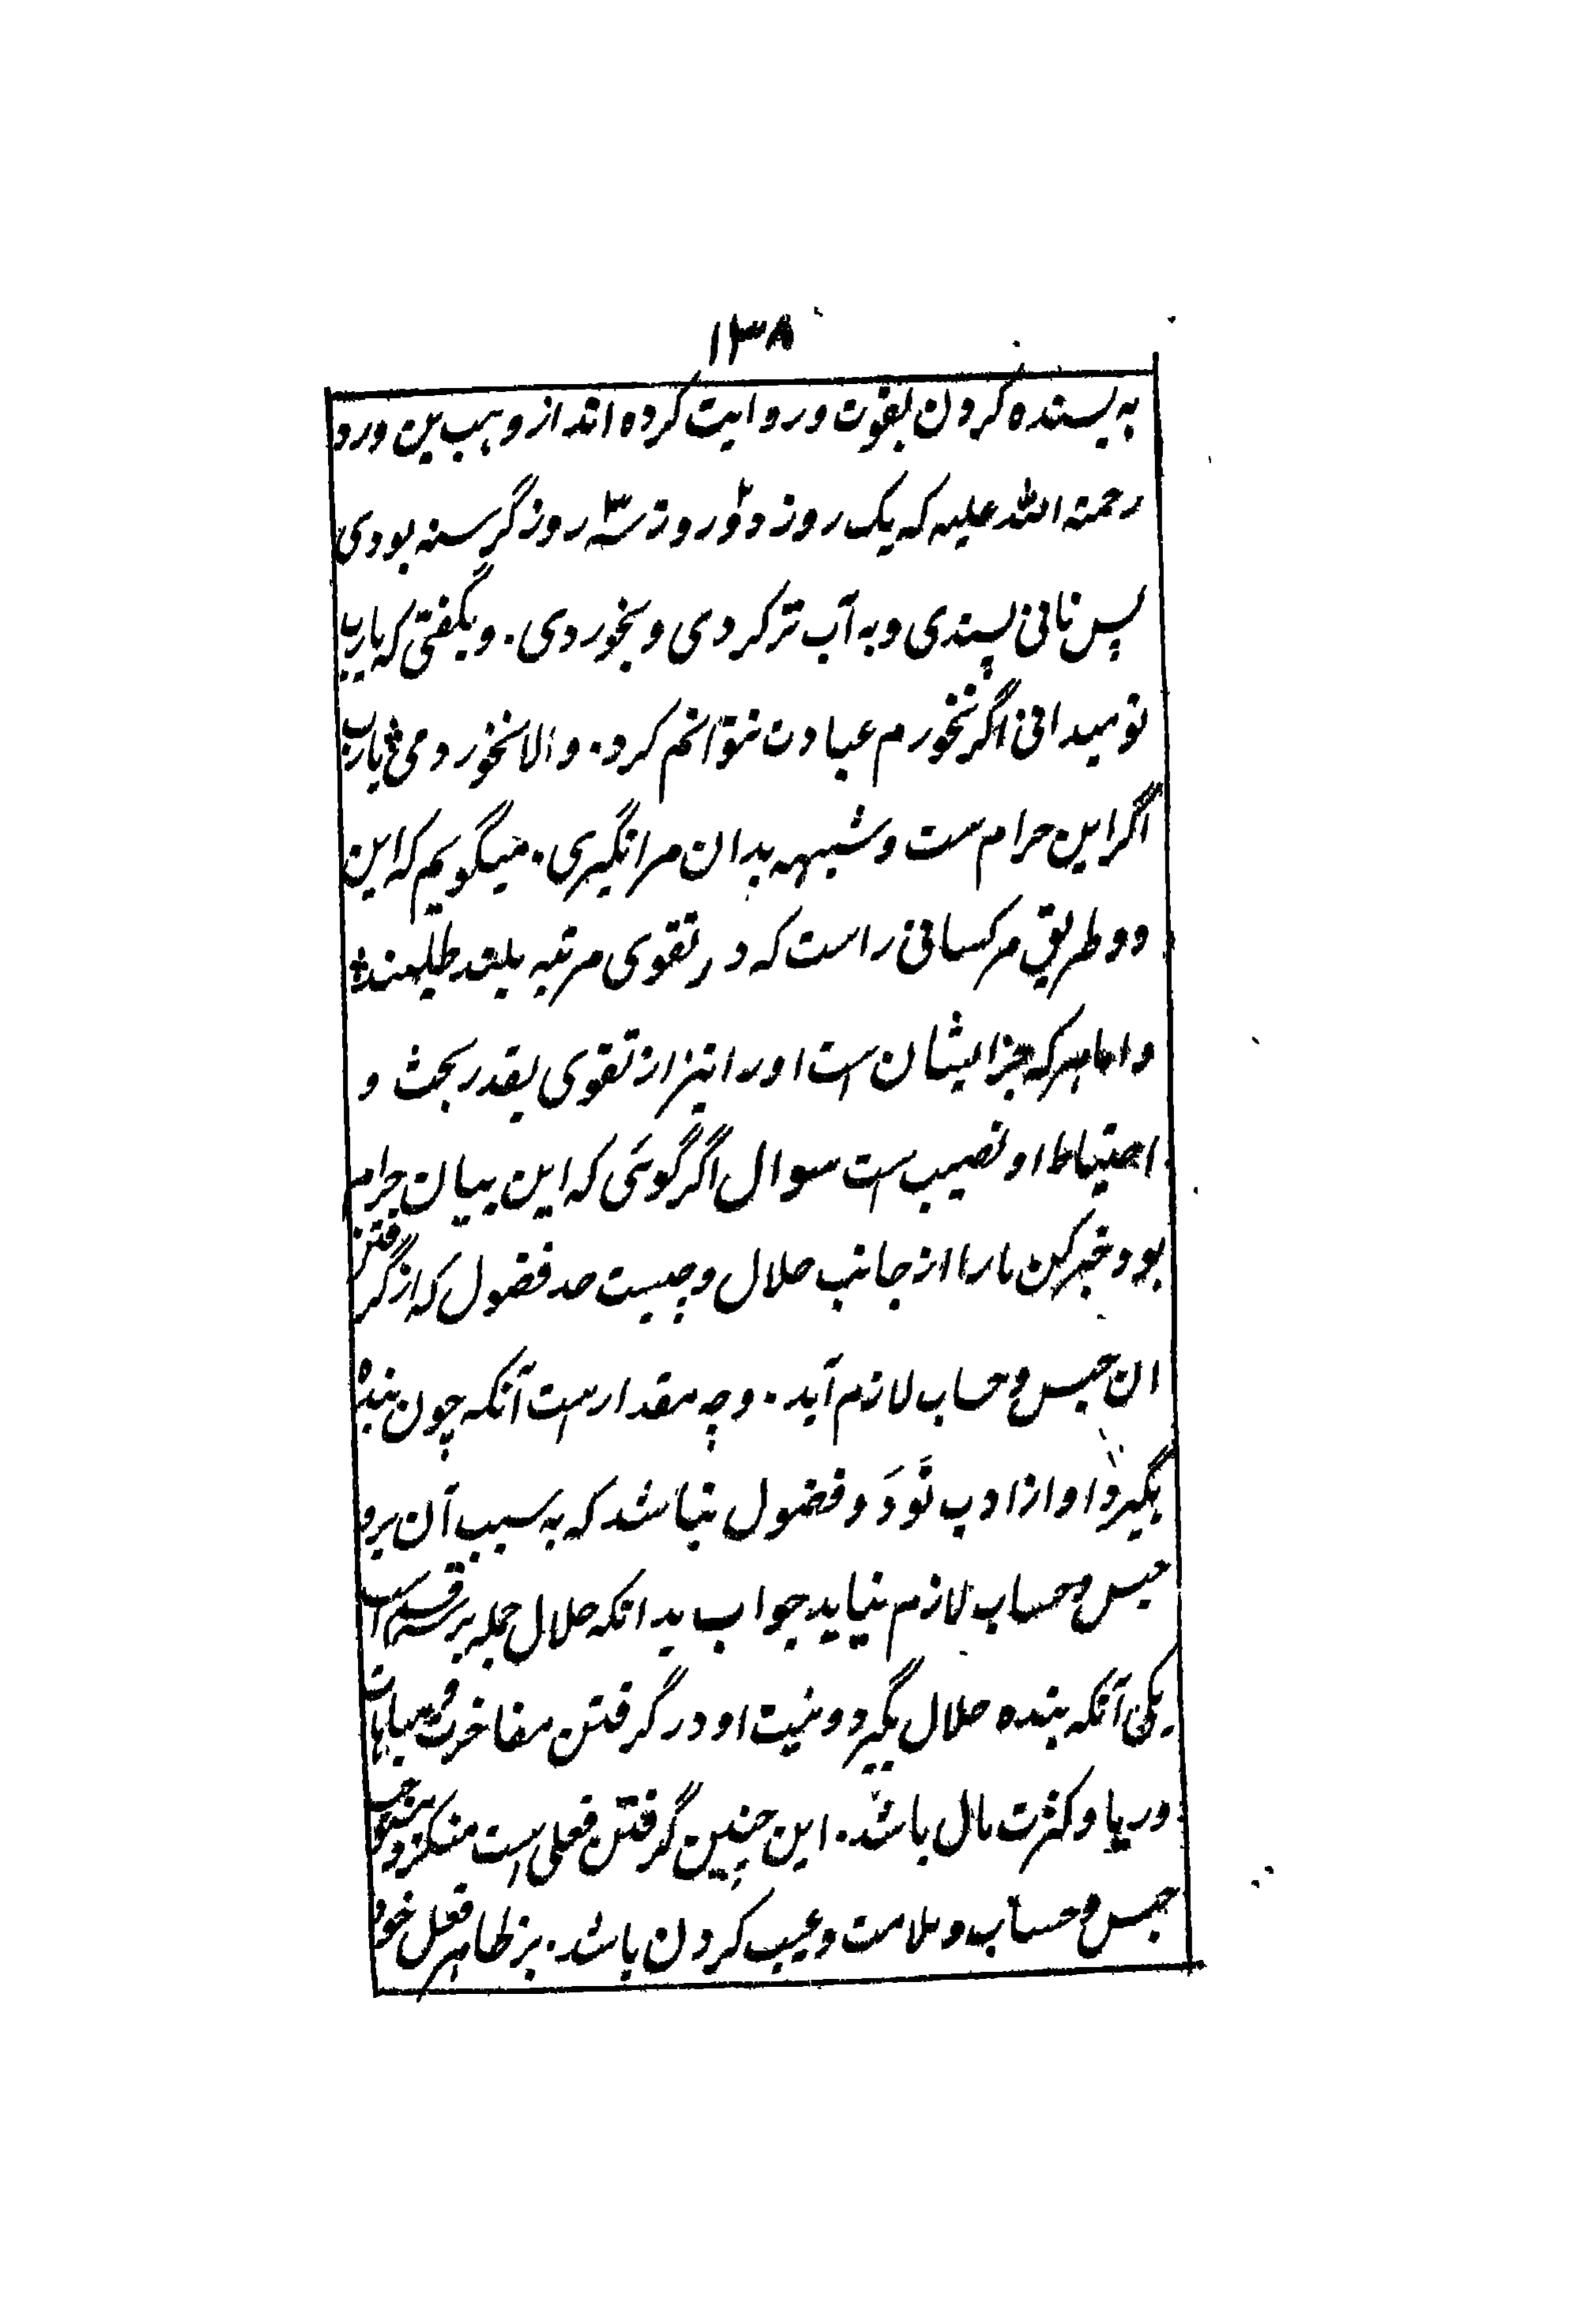 ۱۳۸
به بسنده کردن بقوت و روایت کرده اند از وهب بن ورد
رحمته الله علیه که یک روز دو روز سه روز گرسنه بودی
پس نانی بستدی و به آب تر کردی و بخوردی. و بگفتی که یارب
تو میدانی اگر نخورم عبادت نتوانم کرد. والا نخوردمی یارب
اگر این حرام ست و شبهه بدان مرا نگیری. میگویم که این
دو طریق مر کسانی راست که در تقوی مرتبه بلند طلبند
و اما هر که جز ایشان است او را نیز از تقوی بقدر بحث و
احتیاط او نصیب ست سوال اگر گوئی که این بیان حرام
بود خبر کن ما را از جانب حلال و چیست حد فضول که از گرفتن
ان حبس و حساب لازم آید. و چه مقدار ست آنکه چون بنده
بگیرد او از ادب نَوَدَ و فضول نباشد که به سبب آن برو
حبس و حساب لازم نیاید جواب بدانکه حلال جمله بر سه قسم است
یکی آنکه بنده حلال بگیرد و نیت او در گرفتن مفاخرت و مباهات
و ریا و کثرت مال باشد. این چنین گرفتن فعلی است منکر و مستوجب
حبس و حساب و ملامت و عیب کردن باشد. بر ظاهر فعل خود